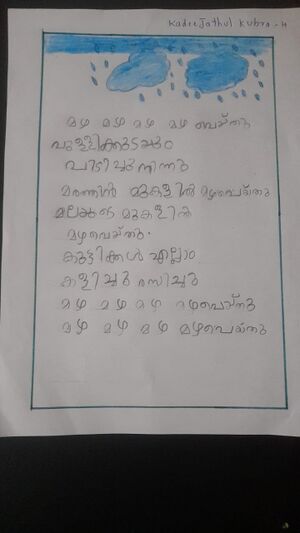 Kadeejathul Kubra - H
മഴ മഴ മഴ മഴ പെയ്തു
പുള്ളിക്കുടയും
പിടിച്ചു നിന്നു
മരത്തിൻ മുകളിൽ മഴപെയ്തു
മലയുടെ മുകളിൽ
മഴപെയ്തു.
കുട്ടികൾ എല്ലാം
കളിച്ചു രസിച്ചു
മഴ മഴ മഴ മഴപെയ്തു
മഴ മഴ മഴ മഴപെയ്തു